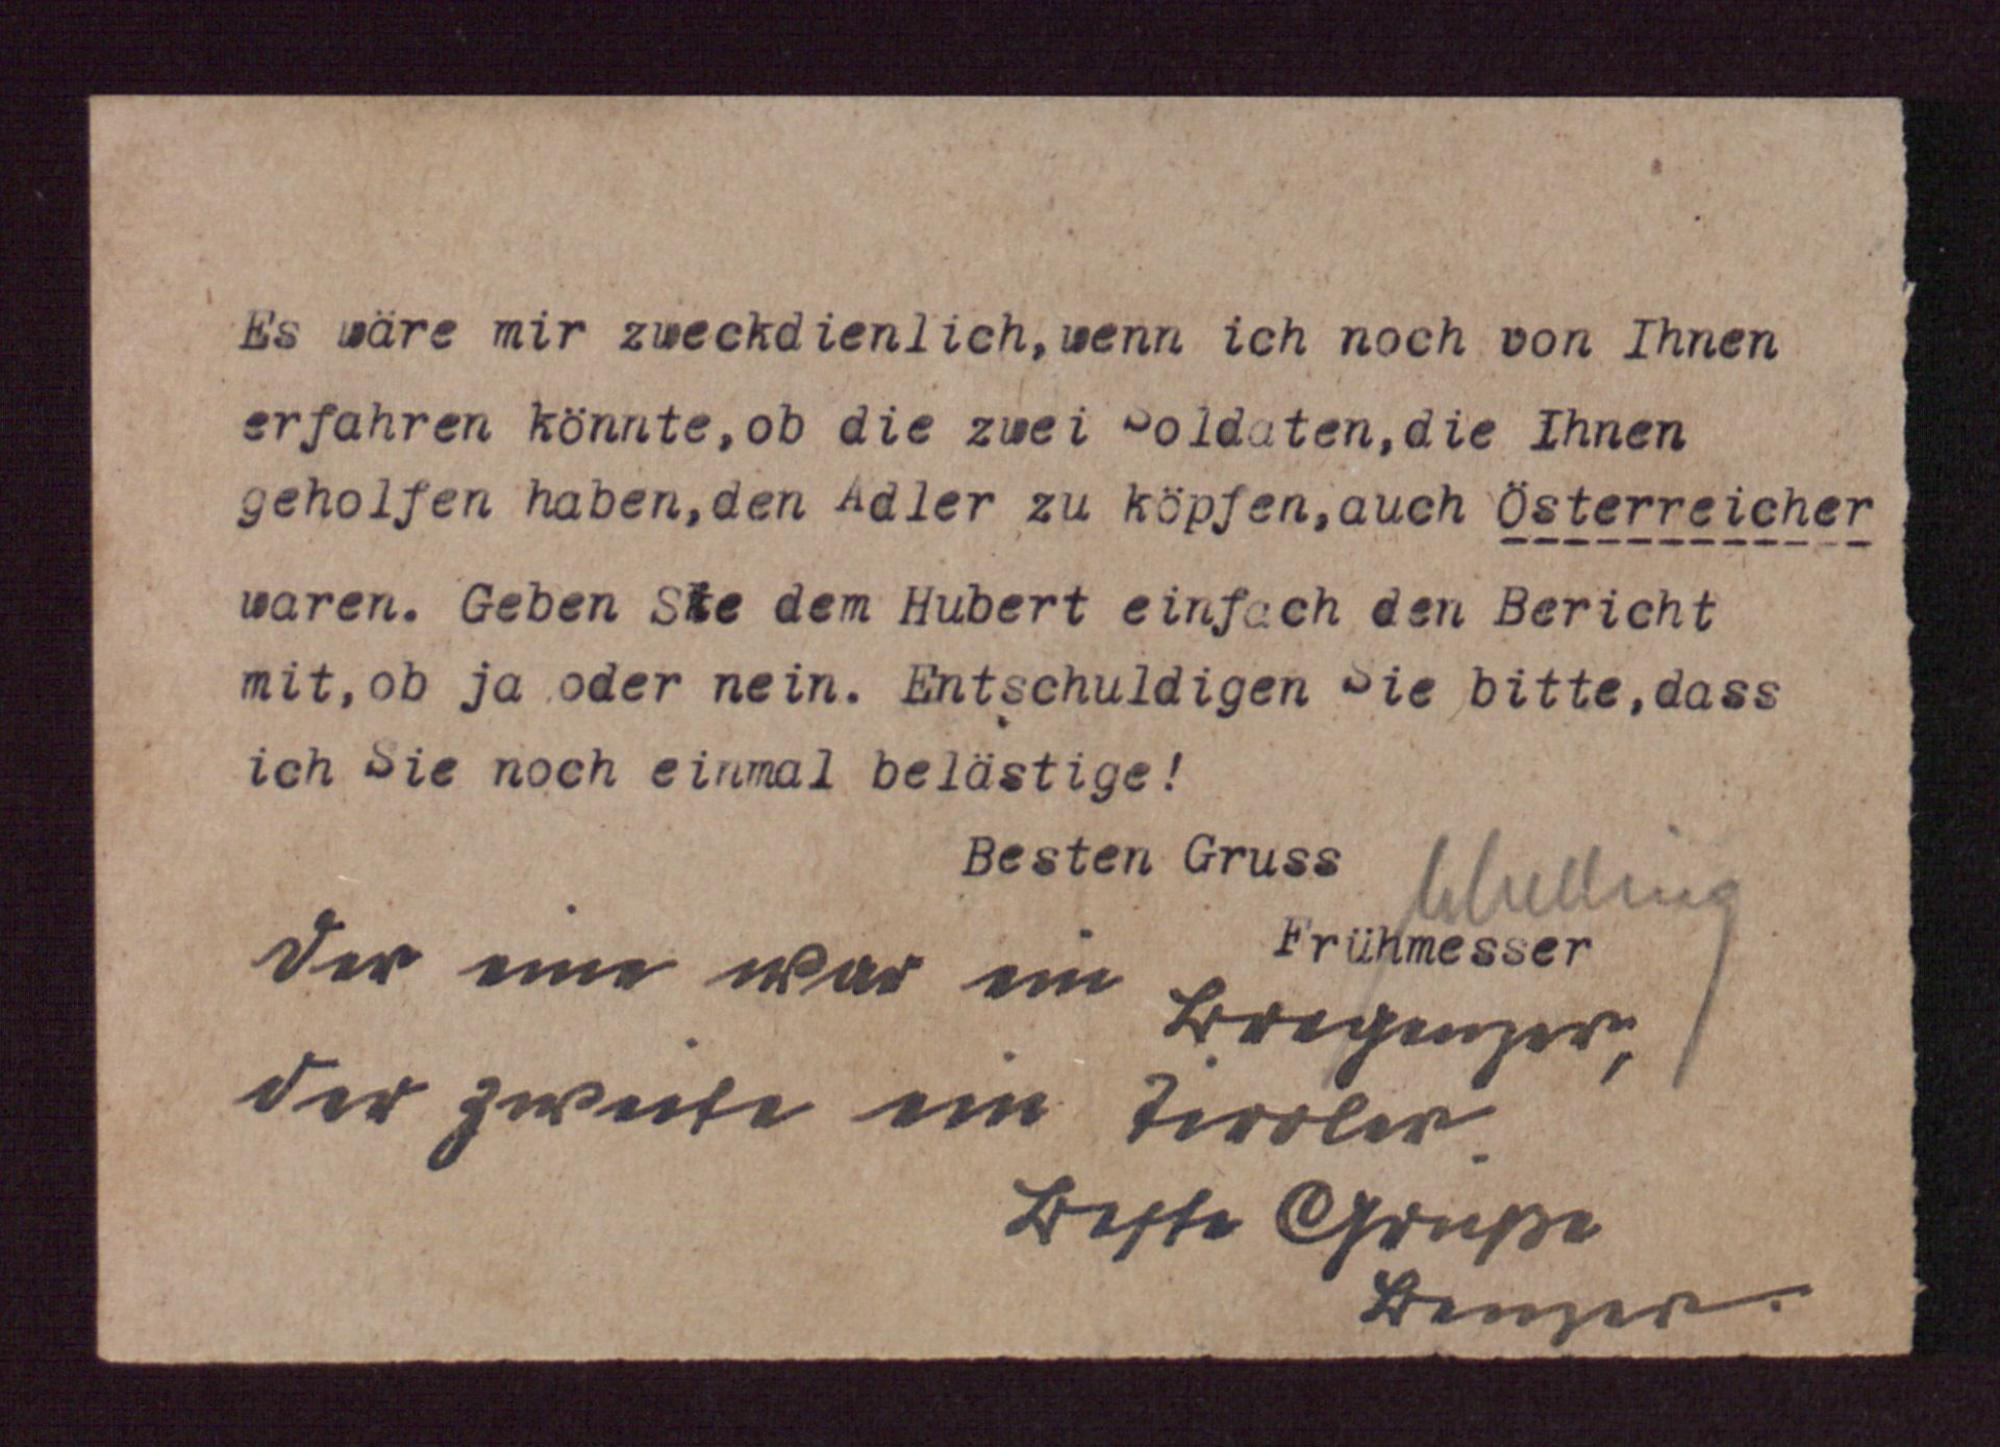 Es wäre mir zweckdienlich,wenn ich noch von Ihnen
erfahren könnte,ob die zwei Soldaten,die Ihnen
geholfen haben,den Adler zu köpfen,auch Österreicher
waren. Geben Sie dem Hubert einfach den Bericht
mit,ob ja oder nein. Entschuldigen Sie bitte,dass
ich Sie noch einmal belästige!
Besten Gruss
Schelling
Frühmesser
Der eine war ein Bregenzer,
der zweite ein Tiroler.
Beste Grüße
Benzer.